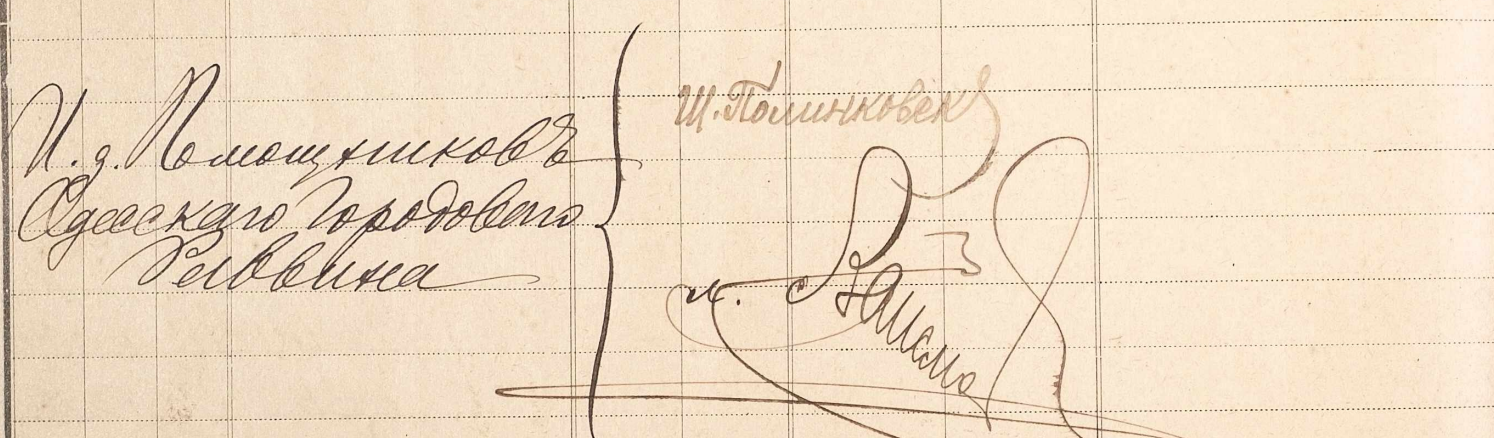 И. д. Помощниковъ
Одесскаго Городового
Раввина
Ш. Полинковск
м.